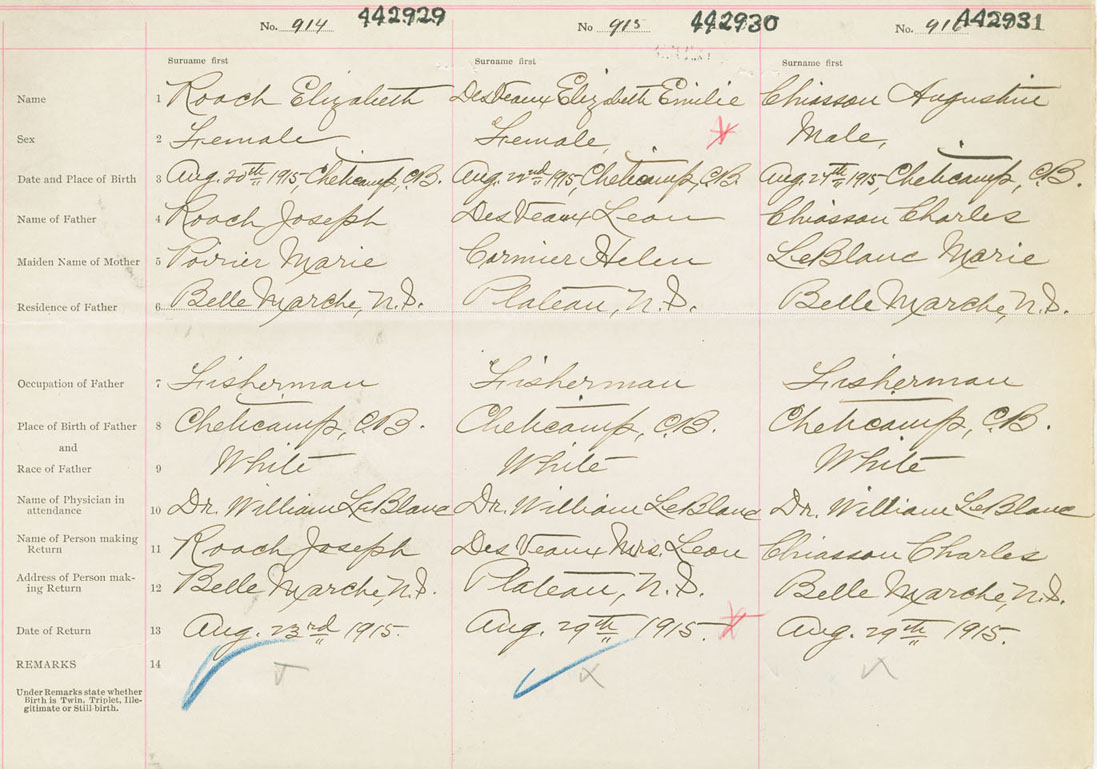 No. 914 442929 No 915 442930 No. 916 A42931
Surname first Surname first Surname first
Name 1 Roach Elizabeth DesVeaux Elizabeth Emilie Chiasson Augustin
Sex 2 Female Female, Male,
Date and Place of Birth 3 Aug. 20th 1915, Cheticamp, C.B. Aug. 22nd 1915 Cheticamp, C.B. Aug. 27th 1915, Cheticamp, C.B.
Name of Father 4 Roach Joseph DesVeaux Leon Chiasson Charles
Maiden Name of Mother 5 Poirier Marie Cormier Helen LeBlanc Marie
Residence of Father 6 Belle Marche, N.S. Plateau, N.S. Belle Marche, N.S.
Occupation of Father 7 Fisherman Fisherman Fisherman
Place of Birth of Father 8 Cheticamp, C.B. Cheticamp, C.B. Cheticamp, C.B.
and
Race of Father 9 White White White
Name of Physician in
attendance 10 Dr. William LeBlanc Dr. William LeBlanc Dr. William LeBlanc
Name of Person making
Return 11 Roach Joseph Des Veaux Mrs. Leon Chiasson Charles
Address of Person mak-
ing Return 12 Belle Marche, N.S. Plateau, N.S. Belle Marche, N.S.
Date of Return 13 Aug. 23rd 1915. Aug. 29th 1915. Aug. 29th 1915.
REMARKS 14
Under Remarks state whether
Birth is Twin, Triplet, Ille-
gitimate or Still-birth.